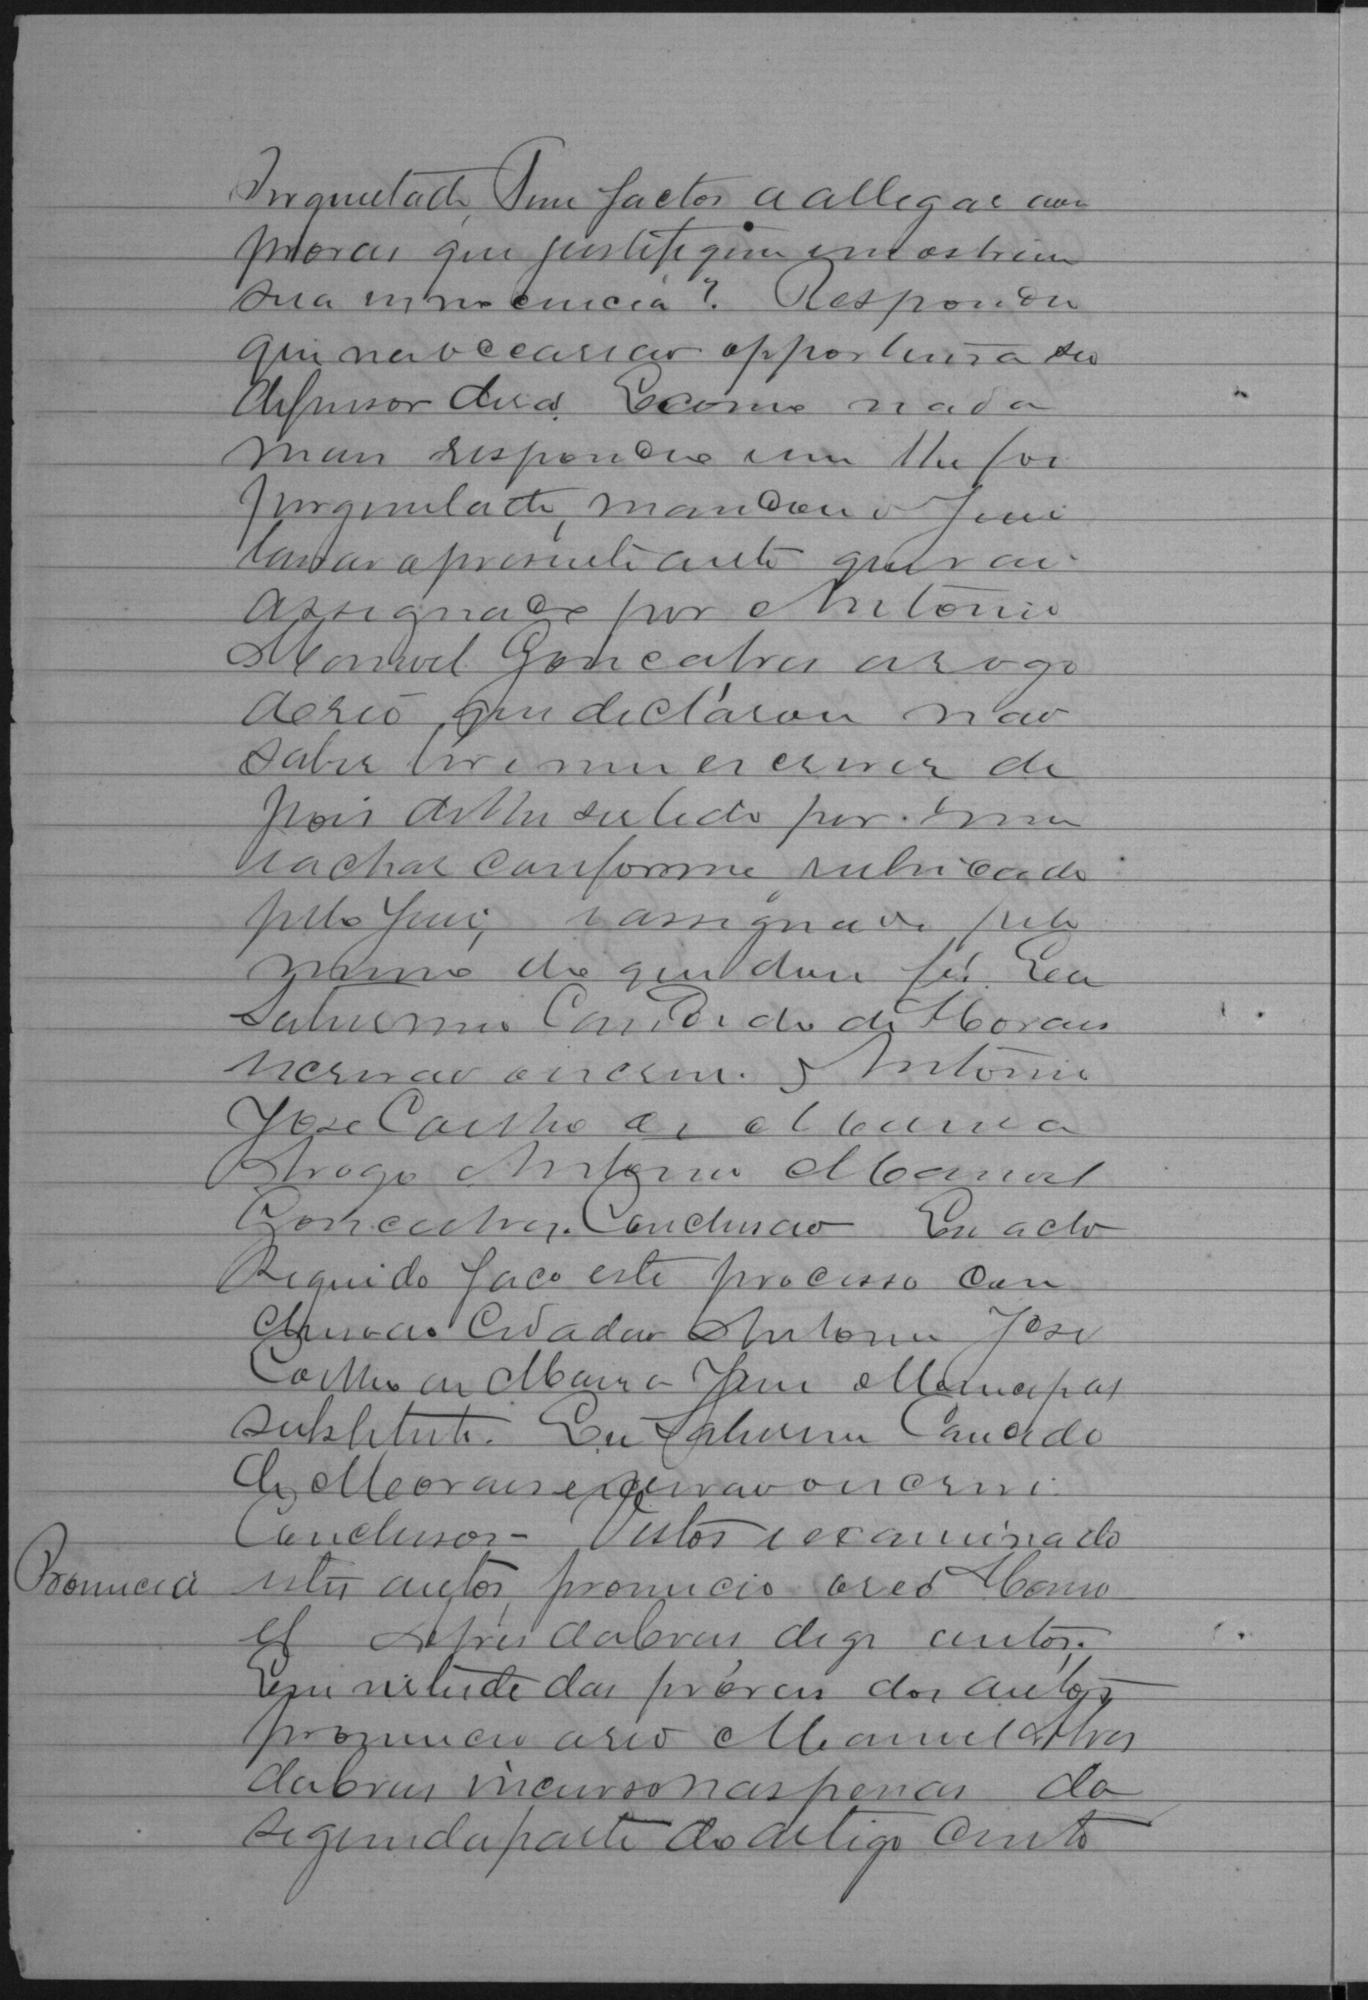 Purguntado, Tem factos a allegar ou
provas que justifiquem ou mostrem
sua innocencia? Respondeu
que na occasião opportuna seu
defensor dira. E como nada
mais respondeu nem lhe foi
purguntado, mandou o Juiz
lavrar o presente auto que vai
assignado por Antonio
Manoel Goncalves a rogo
do réo, que declarou não
saber ler e nem escrever de
pois de lhe ser lido por mim
e achar conforme, rubricado
pelo Juiz, e assignado pelo
mesmo do que dou fé. Eu
Saturnino Candido de Moraes
escrivão o escrevi. Antonio
José Coelho de Moura
Arogo Antonio Manoel
Goncalves. Conclusão Em acto
seguido faco este processo con
cluso ao Cidadão Antonio José
Coelho de Moura Juiz Municipal
substituto. Eu Saturnino Candido
de Moraes escrivão o escrevi.
Conclusos - Vistos e examinado
Pronuncia estes autos, pronuncio o réo Mano
el Alves dabras de autos.
Em virtude das próvas dos autos,
pronuncio o réo Manuel Alves
dabras incurso nas penas da
segunda parte do artigo cento